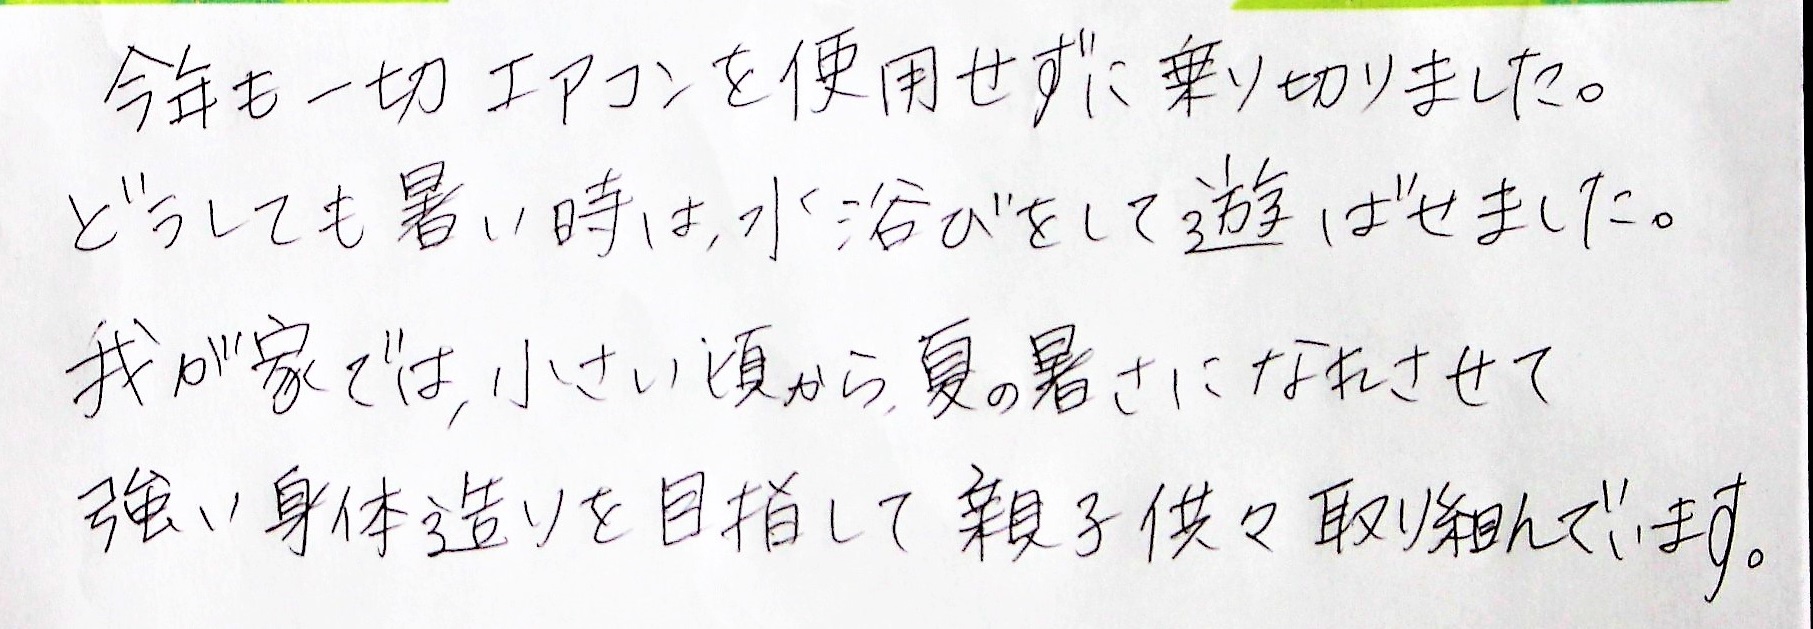 今年も一切エアコンを使用せずに乗り切りました。
どうしても暑い時は、水浴びをして遊ばせました。
我が家では、小さい頃から、夏の暑さになれさせて
強い身体造りを目指して親子供々取り組んでいます。